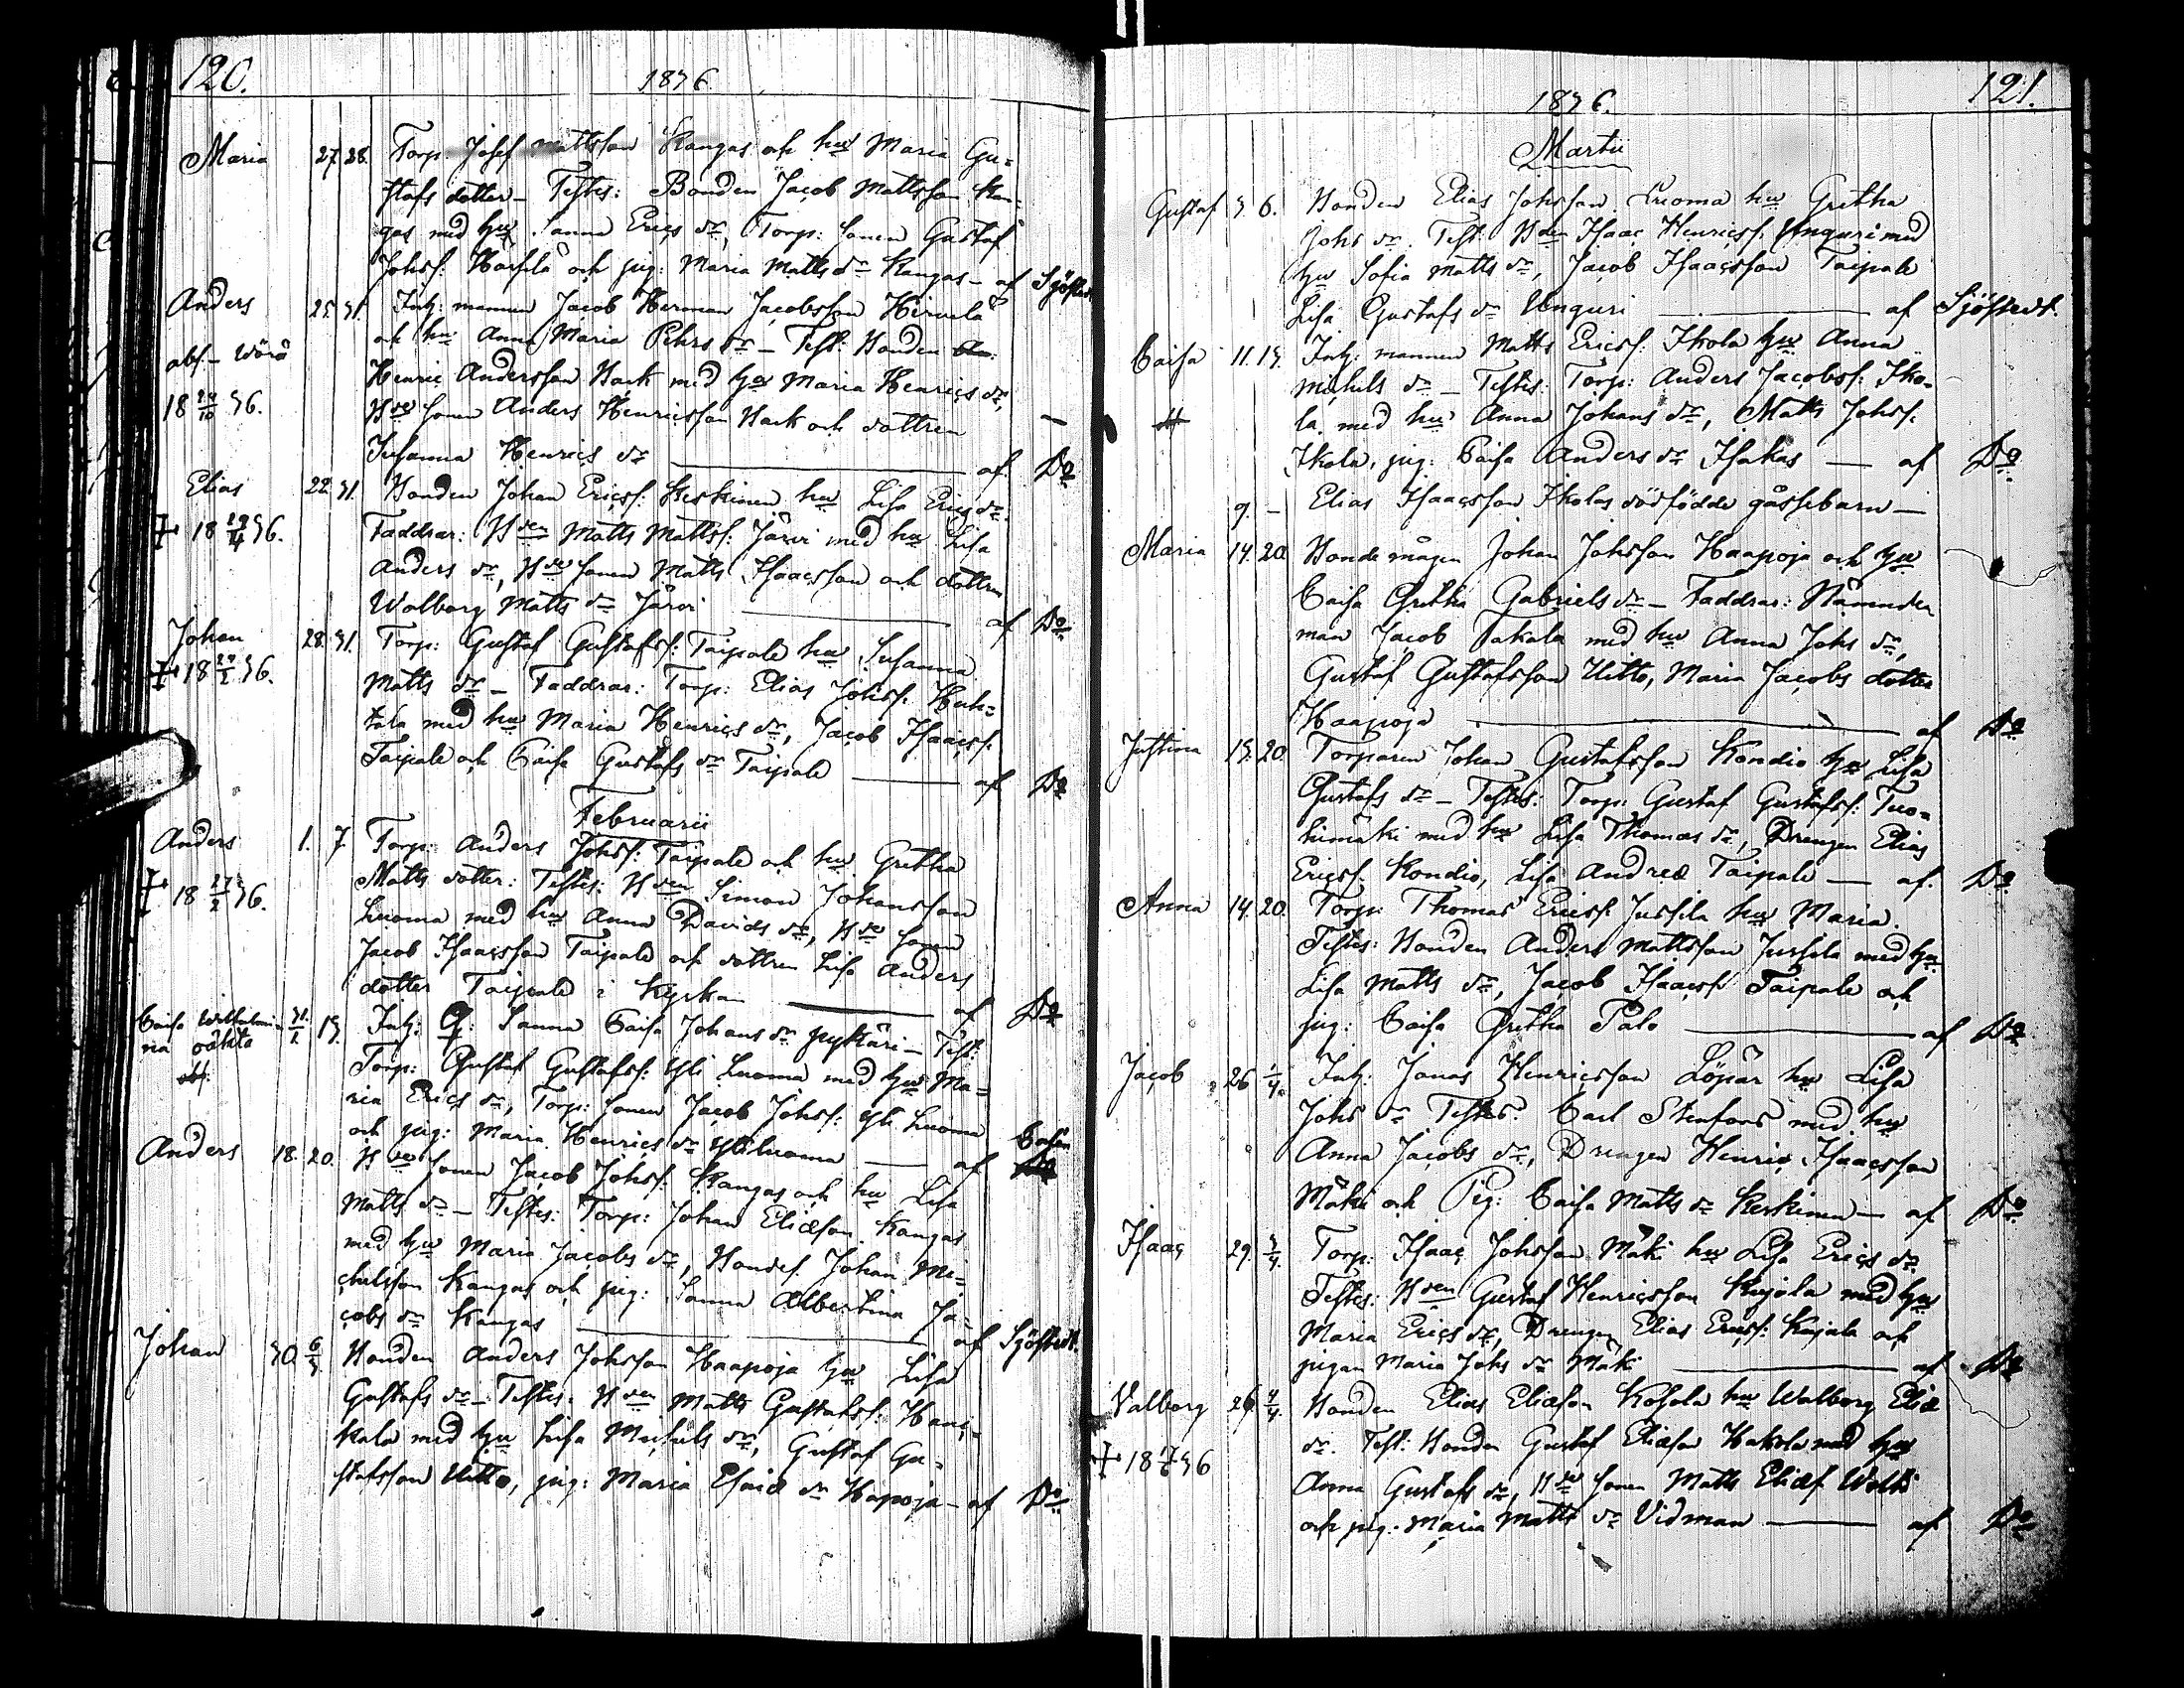 120.
1836.
Maria 27. 28. Torp: Josef Mattsson Kangas och hu Maria Gu=
stafs dotter – Testes: Bonden Jacob Mattsson Kan=
gas med hu Sanna Erics dr, Torp: sonen Gustaf
Johss: och pig: Maria Matts dr Kangas – af Sjöstedt
Anders 25. 31. Inh: mannen Jacob Herman Jacobsson Hirvelä
och hu Anna Maria Pehrs dr – Test: Bonden
abs – Wörå
Henric Andersson Back med hu Maria Henrics dr,
18 24/10 36.
Bde sonen Anders Henricsson Back och dottren
Susanna Henrics dr — af Do
Elias 22. 31. Bonden Johan Ericss: Keskinen hu Lisa Erics dr.
+ 18 /4 36. Faddrar: Bden Matts Mattss: Järvi med hu Lisa
Anders dr, Bde sonen Matts Isaacsson och dottren
Walborg Matts dr Järvi — af Do
Johan 28. 31. Torp: Gustaf Gustafss: Taipale hu Susanna
+ 18 36. Matts dr – Faddrar: Torp: Elias Johss: Huh=
tala med hu Maria Henrics dr, Jacob Isaacss:
Taipale och Caisa Gustafs dr Taipale — af Do
Februarii
Anders 1. 7. Torp: Anders Johss: Taipale och hu Gretha
+ 18 27/2 36. Matts dotter: Testes: Bden Simon Johansson
Luoma med hu Anna Davids dr, Bde sonen
Jacob Isaacsson Taipale och dottren Lisa Anders
dotter Taipale i Kyrkan — af Do
Caisa Wilhelmi= 31/1 13. Inh: Q: Sanna Caisa Johans dr Pyttäri – Test:
na oäkta
Torp: Gustaf Gustafss: Yli Luoma med hu Ma=
ria Erics dr, Torp: sonen Jacob Johss: Yli Luoma
och pig: Maria Henrics dr Yliluoma — af
Anders 18. 20. Bde sonen Jacob Johss: Kangas och hu Lisa
Matts dr – Testes: Torp: Johan Eliæson Kangas
med hu Maria Jacobs dr, Bondes: Johan Mi=
chelsson Kangas och pig: Sanna Albertina Ja=
cobs dr Kangas — af Sjöstedt.
Johan 30. 6/3. Bonden Anders Johsson Haapoja hu Lisa
Gustafs dr – Testes: Bden Matts Gustafss: Hans=
kala med hu Lisa Michels dr, Gustaf Gu=
stafsson Uitto, pig: Maria Esaiæ dr Hapoja – af Do
121.
1836.
Martii
Gustaf 3. 6. Bonden Elias Johsson Luoma hu Gretha
Johs dr. Test: Bden Isaac Henricss: Unguri med
hu Sofia Matts dr, Jacob Isaacsson Taipale
Lisa Gustafs dr Unguri — af Sjöstedt.
Caisa 11. 13. Inh: mannen Matts Ericss: Ikola hu Anna
Michels dr – Testes: Torp: Anders Jacobss: Iko=
la med hu Anna Johans dr, Matts Johss:
Ikola, pig: Caisa Anders dr Isakas — af Do
9. – Elias Isaacsson Ikolas dödfödde gåssebarn —
Maria 14. 20. Bonde mågen Johan Johsson Haapoja och hu
Caisa Gretha Gabriels dr – Faddrar: Nämnde
man Jacob Takala med hu Anna Johs dr,
Gustaf Gustafsson Uitto, Maria Jacobs dotter
Haapoja — af Do
Justina 19. 20. Torparen Johan Gustafsson Kondio hu Lisa
Gustafs dr – Testes: Torp: Gustaf Gustafss: Tuo=
himäki med hu Lisa Thomas dr, Drengen Elias
Ericss. Kondio, Lisa Andreæ Taipale — af. Do
Anna 14. 20. Torp: Thomas Ericss: Jussila hu Maria.
Testes: Bonden Anders Mattsson Jussila med hu
Lisa Matts dr, Jacob Isaacss: Taipale och
pig: Caisa Gretha Palo — af Do
Jacob 26. 1/4. Inh: Jonas Henricsson Löpar hu Lisa
Johs dr Testes: Carl Stenfors med hu
Anna Jacobs dr, Drengen Henric Isaacsson
Mäki och Pig: Caisa Matts dr Keskinen — af Do
Isaac 29. 3/4. Torp: Isaac Johsson Mäki hu Lisa Erics dr
Testes: Bden Gustaf Henricsson Kujala med hu
Maria Erics dr, Drengen Elias Ericss: Kujala och
pigan Maria Johs dr Mäki — af Do
Valborg 26. 4/4. Bonden Elias Eliæson Kosola hu Walborg Eliæ
dr. Test: Bonden Gustaf Eliæson Hakola med hu
+ 18 36
Anna Gustafs dr, Bde sonen Matts Eliæs Wolti
och pig: Maria Matts dr Vidman — af Do